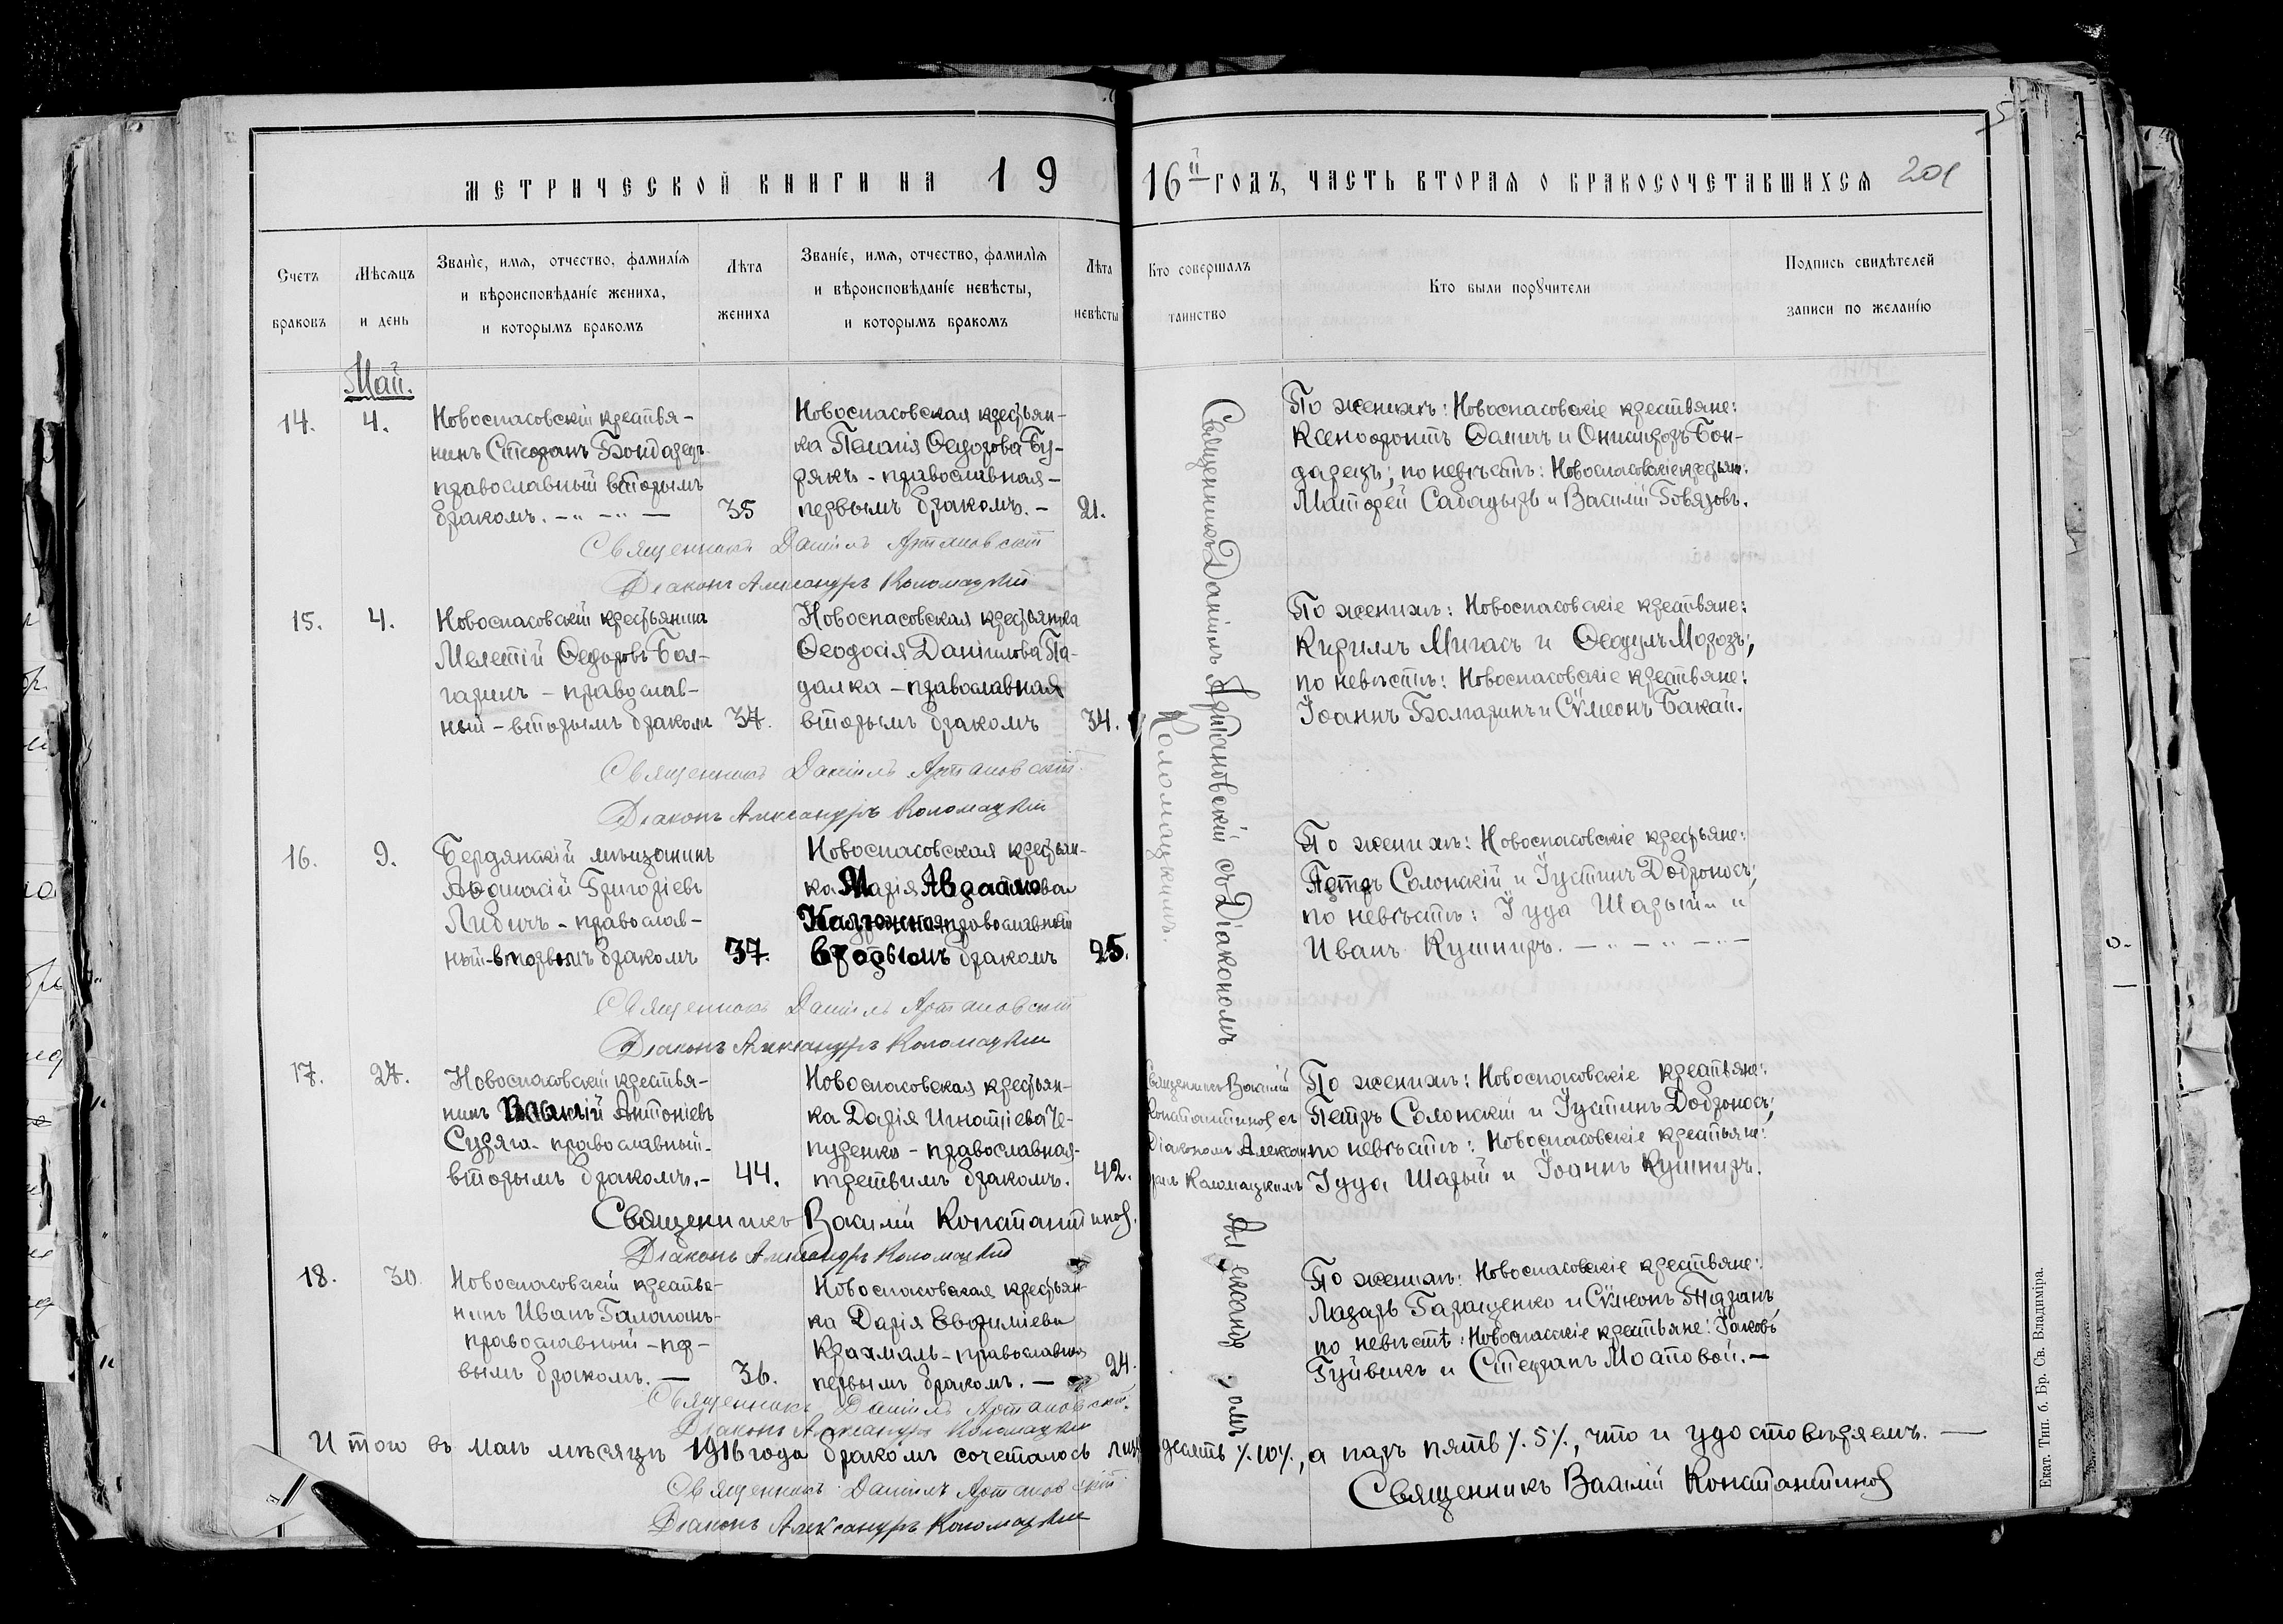 МЕТРИЧЕСКОЙ КНИГИ НА 1916й ГОДЪ, ЧАСТЬ ВТОРАЯ О БРАКОСОЧЕТАВШИХСЯ
201
Счетъ браковъ
Мѣсяцъ и день
Званіе, имя, отчество, фамилія
и вѣроисповѣданіе жениха,
и которымъ бракомъ
Лѣта жениха
Званіе, имя, отчество, фамилія
и вѣроисповѣданіе невѣсты,
и которымъ бракомъ
Лѣта невѣсты
Кто совершалъ
таинство
Кто были порꙋчители
Подпись свидѣтелей
записи по желанію
Май.
14. 4.
Новоспасовскій крестья-
нинъ Стефанъ Бондарецъ
православный вторымъ
бракомъ. 35
Новоспасовская крестьян-
ка Пелагія Ѳедорова Бу-
рякъ - православная -
первымъ бракомъ. - 21.
Священникъ Даніилъ Артановскій съ Діакономъ Александромъ
Коломацкимъ.
По женихѣ: Новоспасовскіе крестьяне:
Ксенофонтъ и Бон-
дарецъ; по невѣстѣ: Новоспасовскіе крестьяне:
Матфей Сабадырь и Василій Говязовъ.
Священникъ Даніилъ Артановскій
Діаконъ Александръ Коломацкій
15. 4.
Новоспасовскій крестьянинъ
Мелетій Ѳедоровъ Бол-
гаринъ - православ-
ный - вторымъ бракомъ 37.
Новоспасовская крестьянка
Ѳеодосія Даніилова Па-
далка - православная
вторымъ бракомъ 34.
По женихѣ: Новоспасовскіе крестьяне:
Кириллъ Мигасъ и Ѳедулъ Морозъ;
по невѣстѣ: Новоспасовскіе крестьяне:
Іоаннъ Болгаринъ и Сѵмеонъ Бакай.
Священникъ Даніилъ Артановскій
Діаконъ Александръ Коломацкій
16. 9.
Бердянскій мѣщанинъ
Аѳанасій Григоріевъ
Либичъ - православ-
ный - вторымъ бракомъ 37.
Новоспасовская крестьян-
ка Марія
православная
бракомъ 25.
По женихѣ: Новоспасовскіе крестьяне:
Петръ Солонскій и Іустинъ Доброносъ;
по невѣстѣ: Іуда Шарый и
Иванъ Кушниръ.
Священникъ Даніилъ Артановскій
Діаконъ Александръ Коломацкій
17. 27.
Новоспасовскій крестья-
нинъ Василій Антоніевъ
Суряга - православный -
вторымъ бракомъ. - 44.
Новоспасовская крестьян-
ка Дарія Игнатіева Че-
пуренко - православная -
третьимъ бракомъ. 42.
Священникъ Василій
Константиновъ съ
Діакономъ Алексан-
дромъ Коломацкимъ
По женихѣ: Новоспасовскіе крестьяне:
Петръ Солонскій и Іустинъ Доброносъ;
по невѣстѣ: Новоспасовскіе крестьяне:
Іуда Шарый и Іоаннъ Кушниръ.
Священникъ Василій Константиновъ.
Діаконъ Александръ Коломацкій
18. 30.
Новоспасовскій крестья-
нинъ Иванъ Галаганъ -
православный - пер-
вымъ бракомъ. - 36.
Новоспасовская крестьян-
ка Дарія Евфиміева
Крахмаль - православная
первымъ бракомъ. - 24.
По женихѣ: Новоспасовскіе крестьяне:
Лазарь Гаращенко и Сѵмеонъ
по невѣстѣ: Новоспасскіе крестьяне: Іаковъ
и Стефанъ Мостовой. -
Священникъ Даніилъ Артановскій
Діаконъ Александръ Коломацкій
Итого въ маѣ мѣсяцѣ 1916 года бракомъ сочеталось лицъ десять /.10/., а паръ пять /.5/., что и удостовѣряемъ. -
Священникъ Даніилъ Артановскій
Священникъ Василій Константиновъ
Діаконъ Александръ Коломацкій
Екат. Тип. б. Бр. Св. Владиміра.